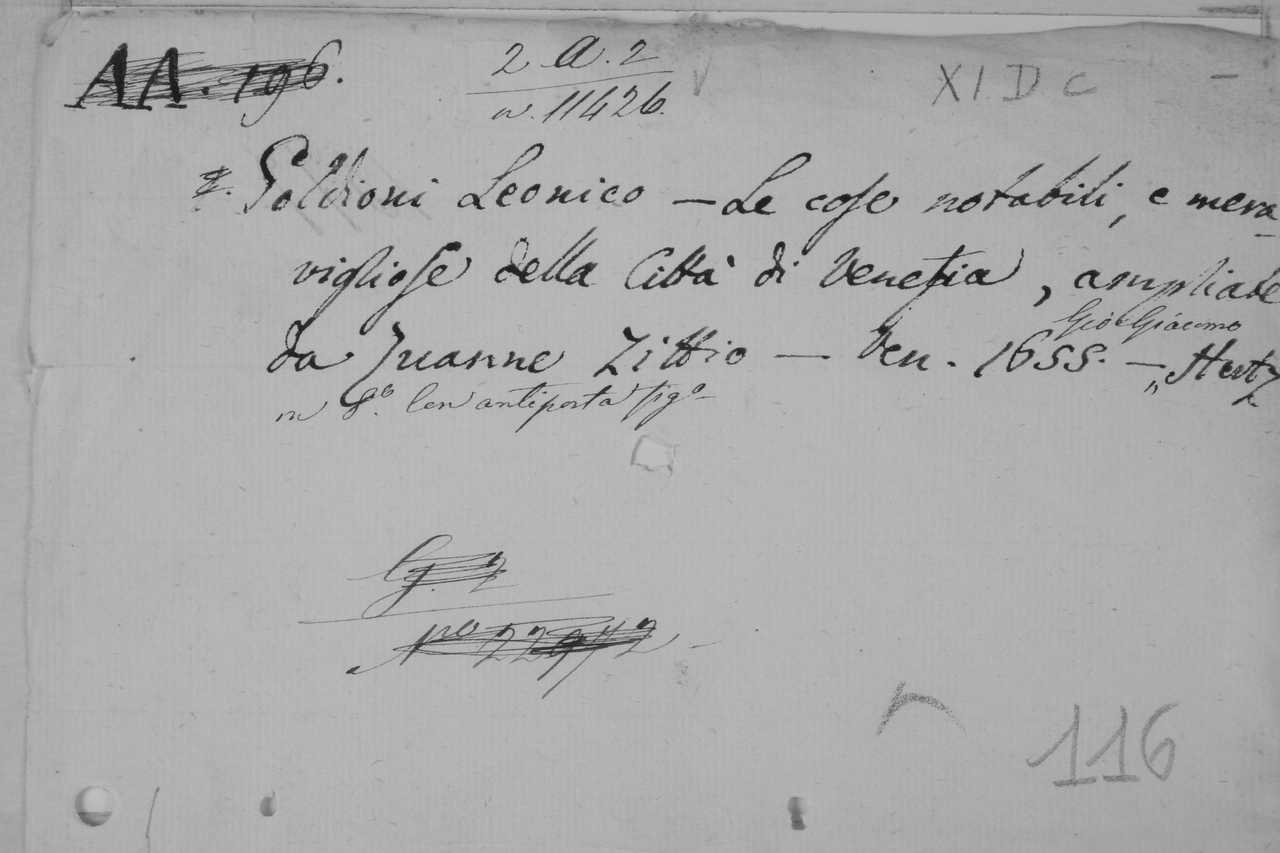 AA. 196.
2 a. 2
n. 11426.
XI D c -
Goldioni Leonico — Le cose notabili, e mera-
vigliose della Città di Venetia, ampliate
da Zuanne Zittio — Ven. 1655. — Gio Giacomo Hertz
in 8.º con antiporta figª
G. 2
Nº 22972
116